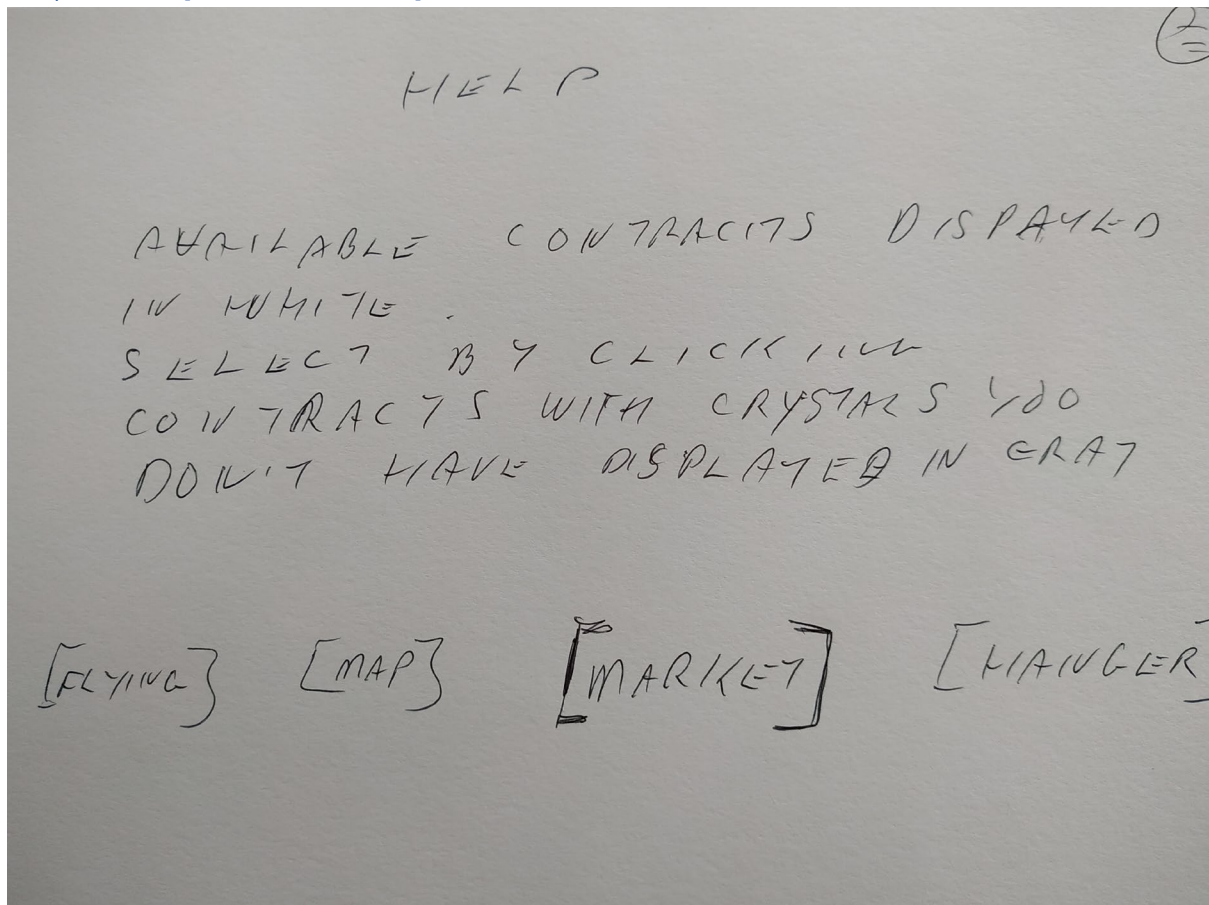 2
HELP
AVAILABLE CONTRACTS DISPAYED
IN WHITE.
SELECT BY CLICKING
CONTRACTS WITH CRYSTALS YOU
DON'T HAVE DISPLAYED IN GRAY
[FLYING] [MAP] [MARKET] [HANGER]